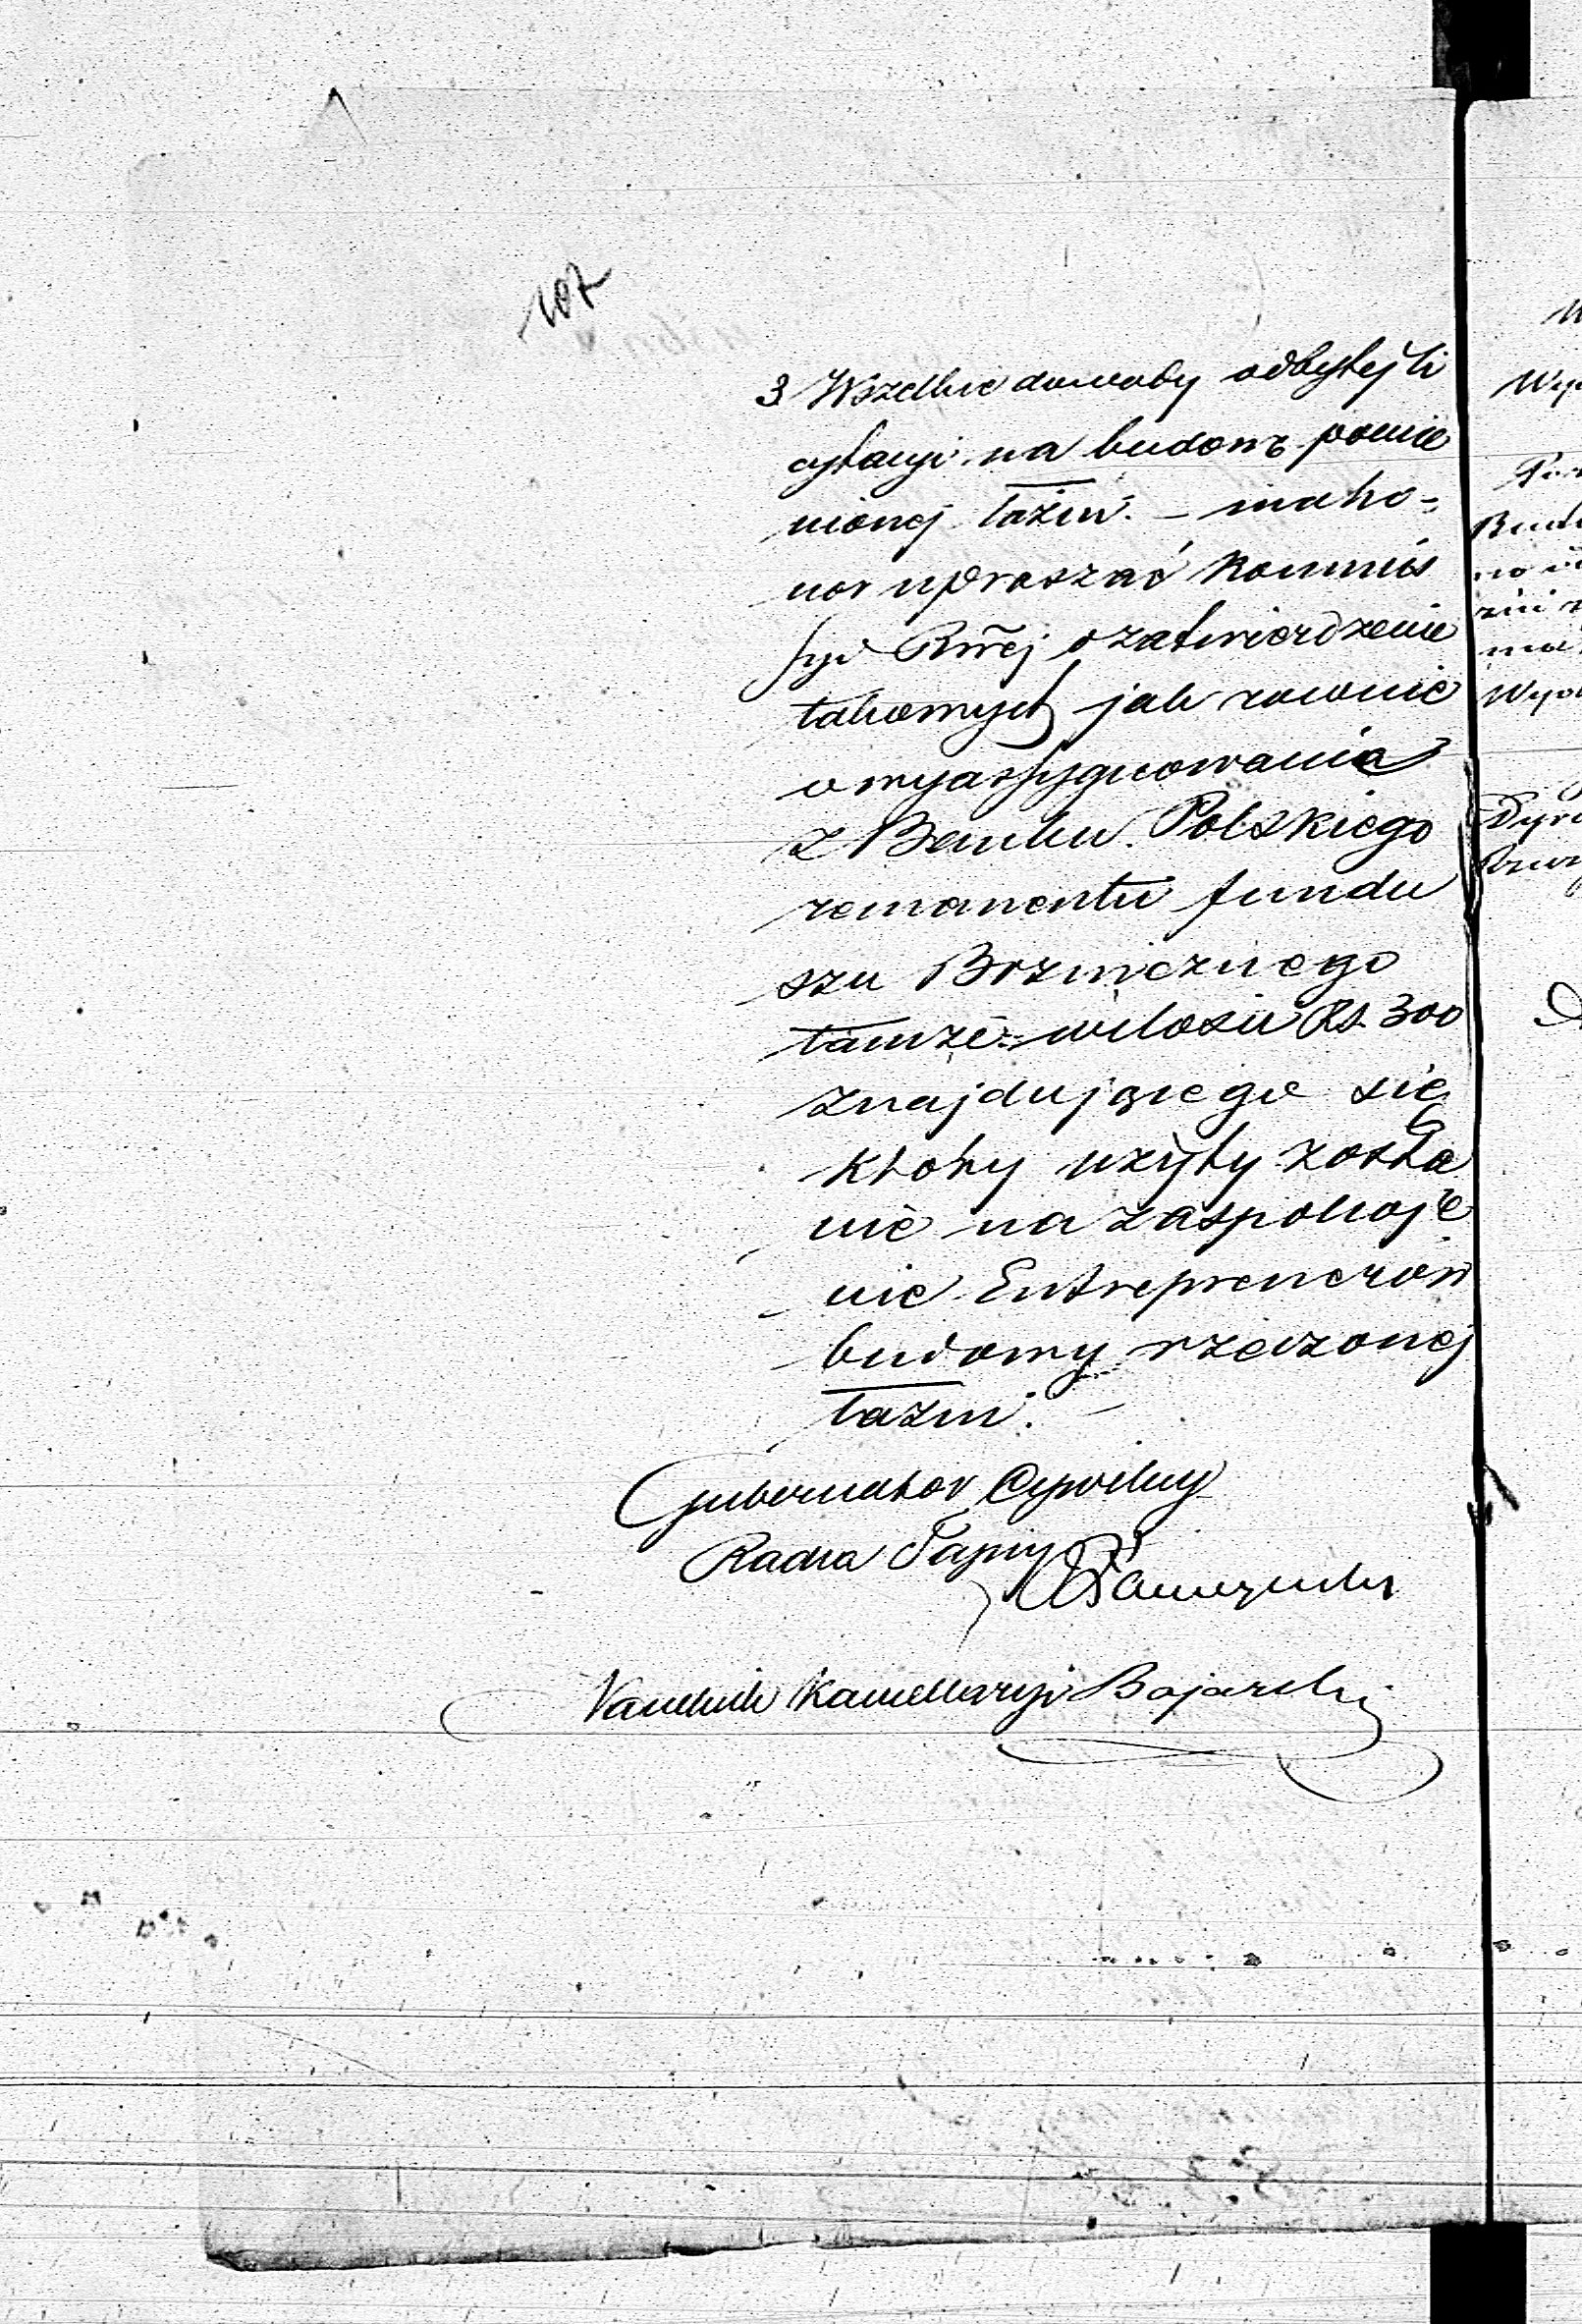 107
3 Wszelkie dowody odbytej li
cytacyi na budowę pomie
nionej łaźni. – ma ho-
nor upraszać Kommis
syi Rwej o zatwierdzenie
takowych jak rownie
o wyassygnowania
z Banku Polskiego
remanentu fundu
szu Bożnicznego
tamże w ilości Rs. 300
znajdującego się
ktory użyty zosta
nie na zaspokoje
nie Entreprenerów
budowy rzeczonej
łaźni. –
Gubernator Cywilny
Radca Tajny
Naczelnik Kancellaryi Bojarski